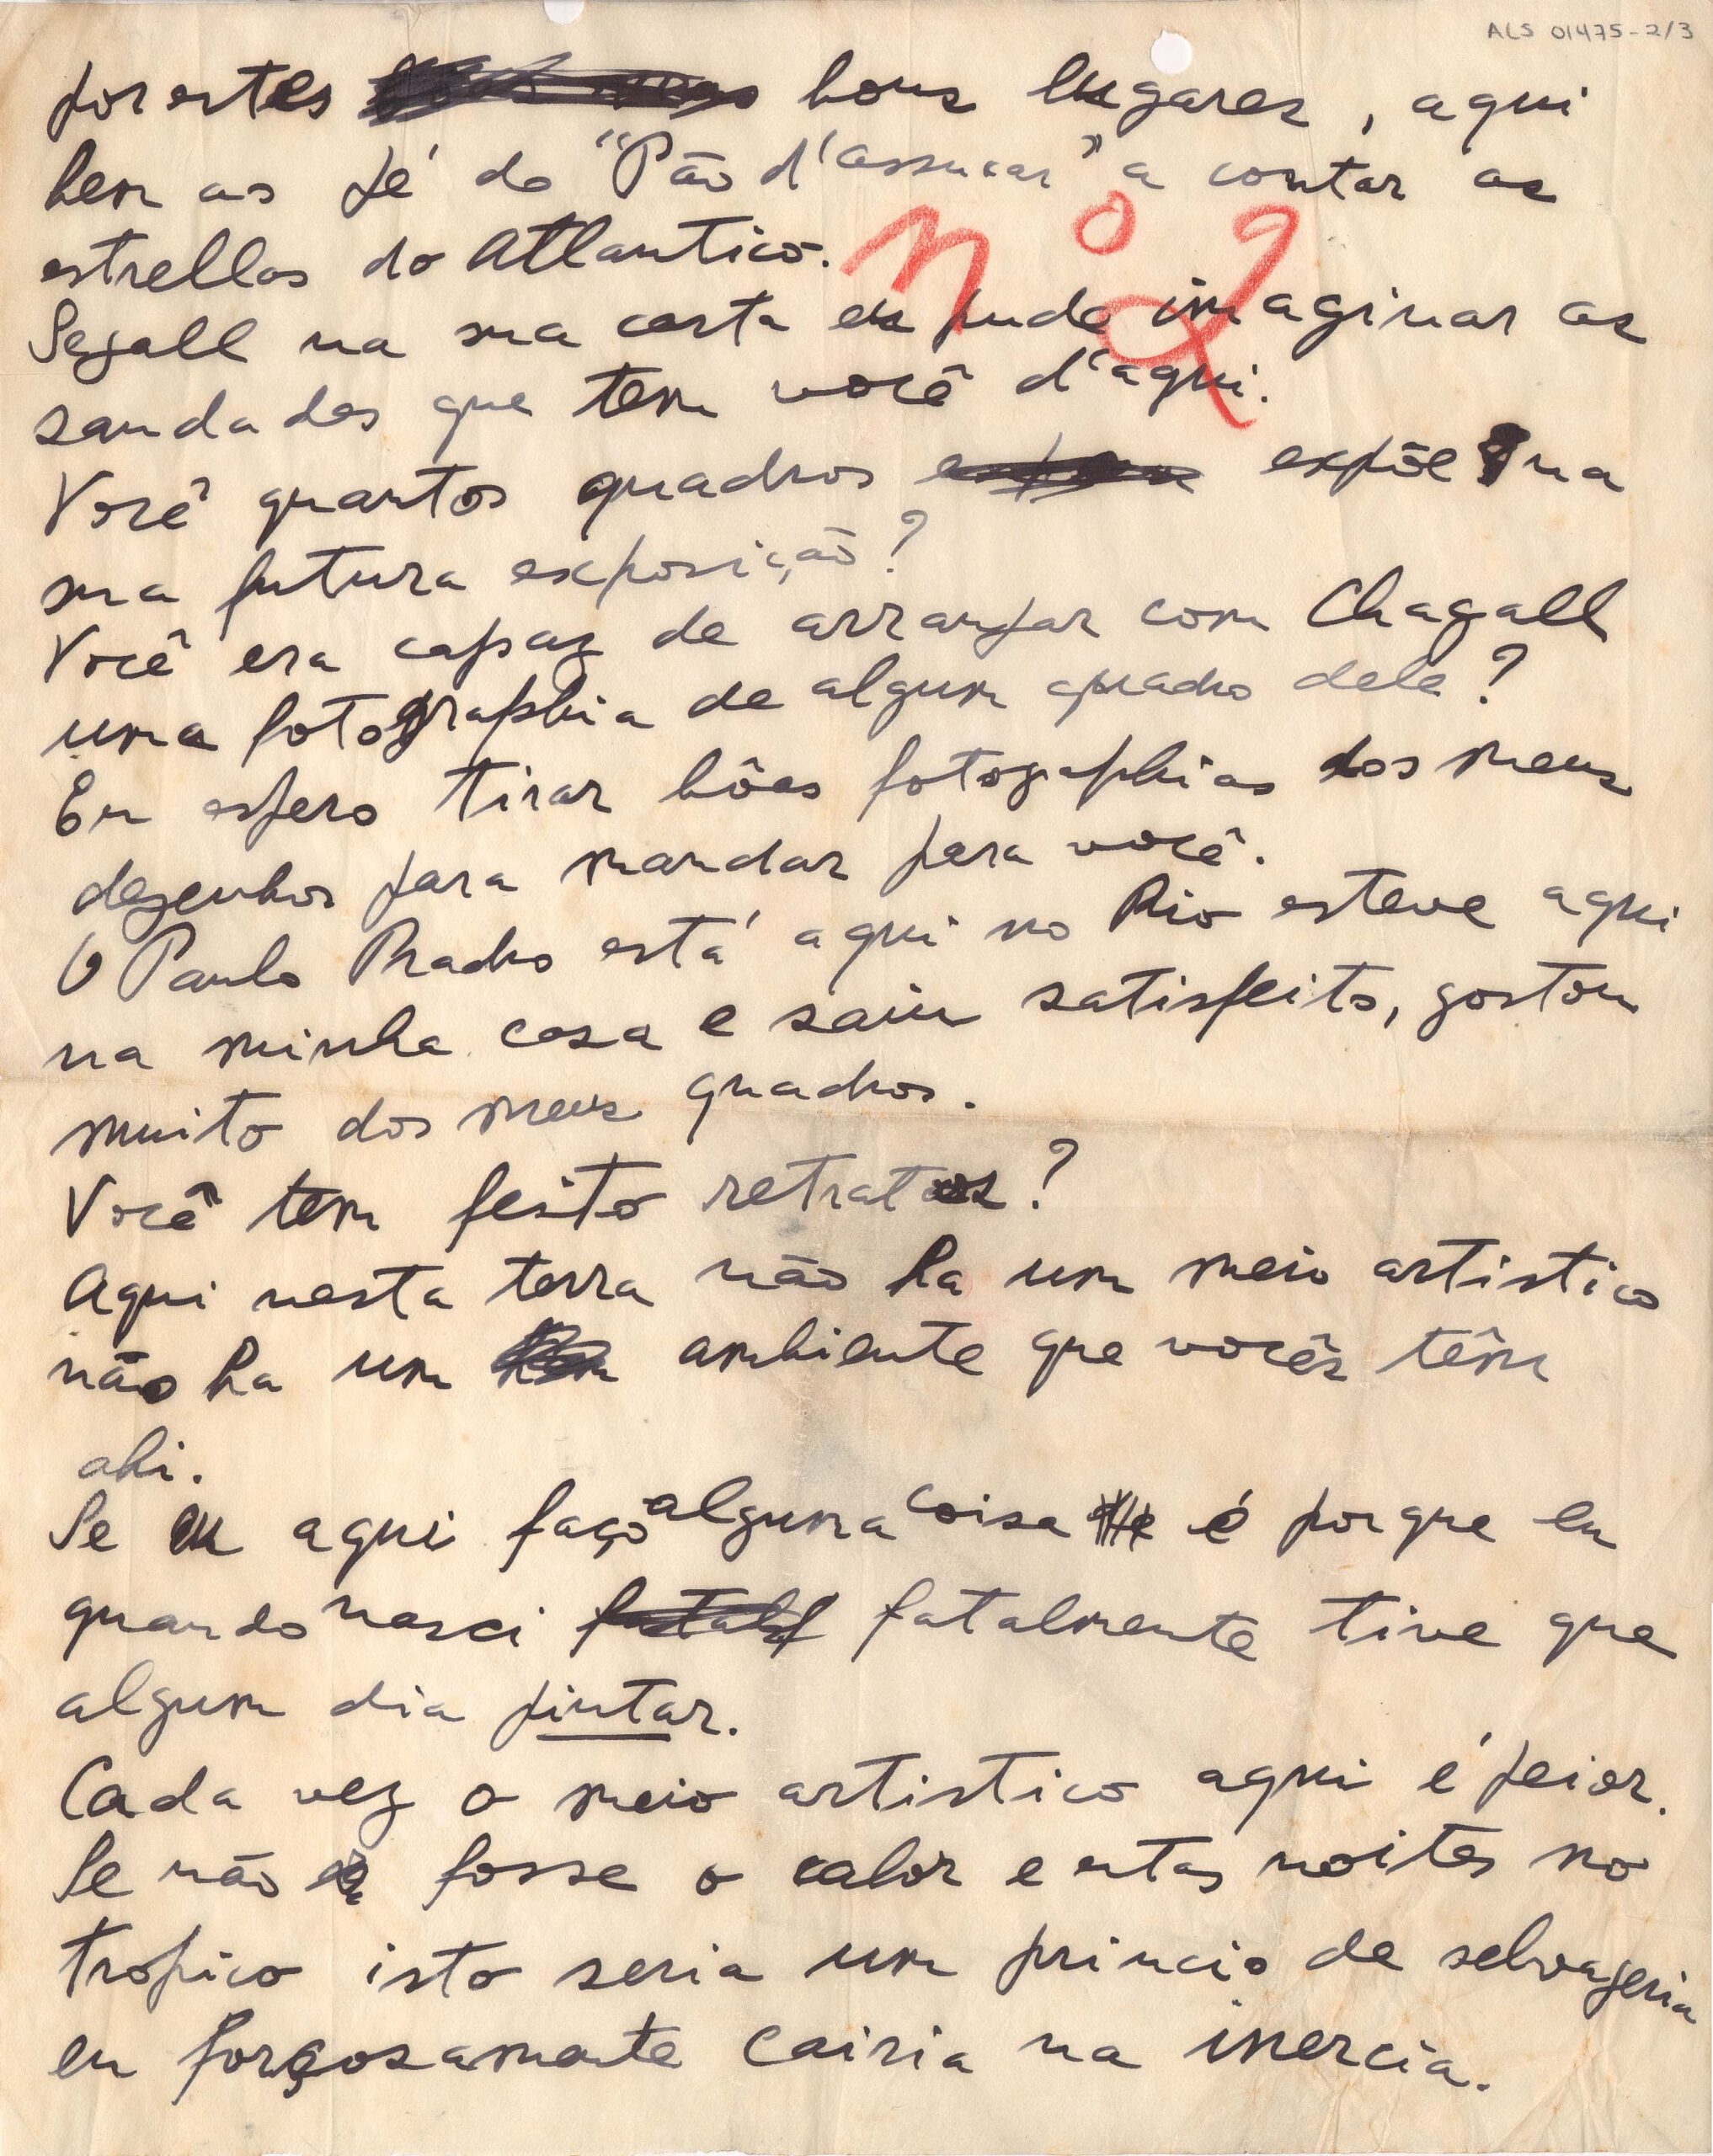 ALS 01475-2/3
por estes bons lugares, aqui
bem ao pé do "Pão d'assucar" a contar as
estrellas do Atlantico.
nº 2
Segall na sua carta eu pude imaginar as
saudades que tem você d'aqui.
Você quantos quadros expõe na
sua futura exposição?
Você era capaz de arranjar com Chagall
uma fotographia de algum quadro dele?
Eu espero tirar bôas fotographias dos meus
dezenhos para mandar para você.
O Paulo Prado está aqui no Rio esteve aqui
na minha casa e saiu satisfeito, gostou
muito dos meus quadros.
Você tem feito retratos?
Aqui nesta terra não ha um meio artistico
não ha um ambiente que vocês têm
ahi.
Se eu aqui faço alguma coisa é porque eu
quando nasci fatalmente tive que
algum dia pintar.
Cada vez o meio artistico aqui é peior.
Se não fosse o calor e estas noites no
tropico isto seria um princio de selvageria
eu forçosamente cairia na inercia.